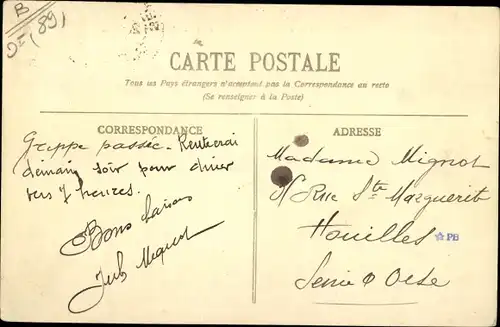 B
(89)
CARTE POSTALE
Tous les Pays étrangers n'acceptent pas la Correspondance au recto
(Se renseigner à la Poste)
CORRESPONDANCE
Grippe passée. Rentrerai
demain soir pour diner
vers 7 heures.
Bons baisers
Mignot
ADRESSE
Madame Mignot
Rue Ste Marguerite
Houilles
PB
Seine & Oise